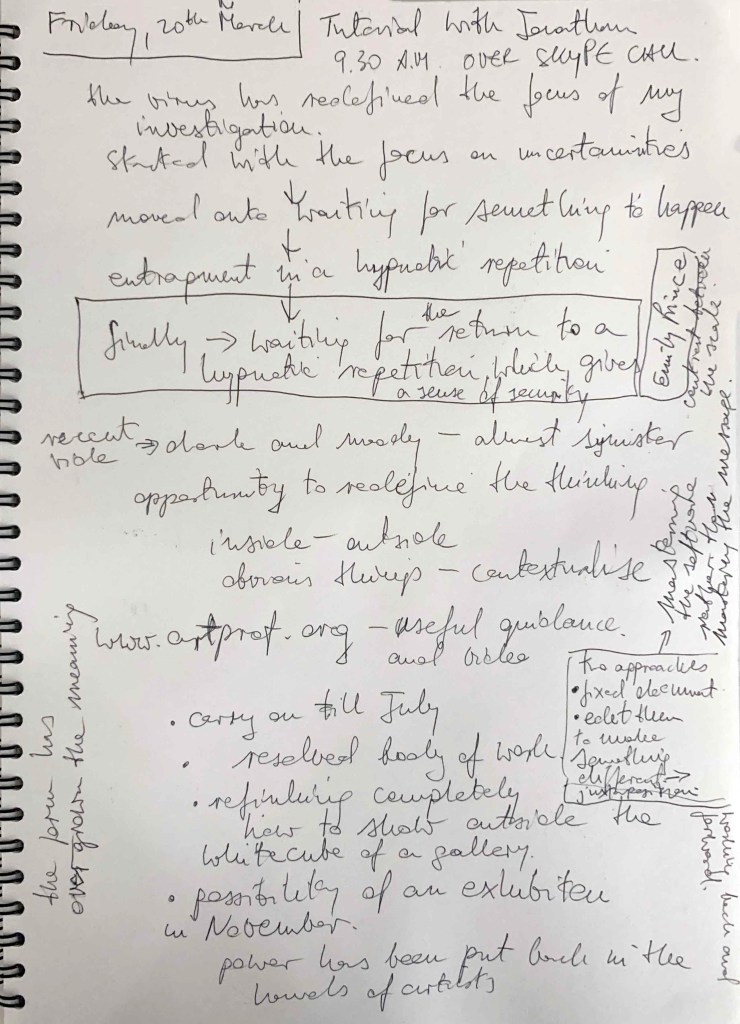 Friday, 20th March
Tutorial with Jonathan
9.30 A.M. OVER SKYPE CALL.
the virus has redefined the focus of my
investigation.
started with the focus on uncertainities
moved onto waiting for something to happen
entrapment in a hypnotic repetition
finally → waiting for the return to a
hypnotic repetition, which gives
a sense of security
Emily Prince
contrast between
the scale.
recent → dark and moody – almost sinister
opportunity to redefine the thinking
inside – outside
obvious things – contextualise
mastering
the software
rather than
mastering the message.
www.artprof.org – useful guidance.
and video
two approaches
• fixed document
• edit them
to make
something
different →
juxtaposition
back and
forward.
• carry on till July
• resolved body of work
• rethinking completely
how to show outside the
whitecube of a gallery.
• possibility of an exhibition
in November.
power has been put back in the
hands of artists
the form has
over grown the meaning